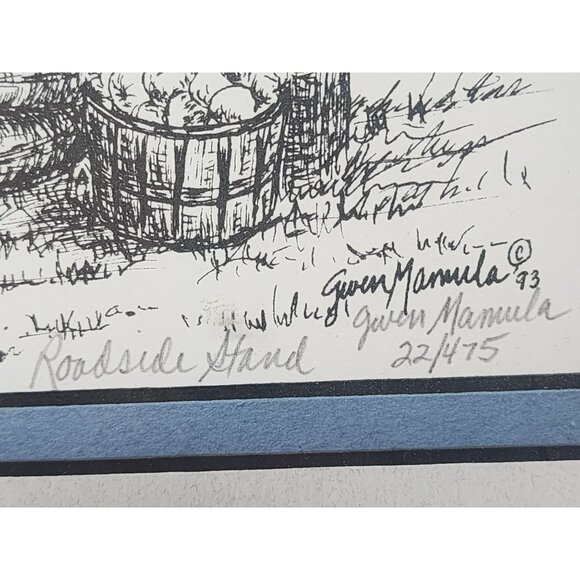 Gwen Mamula © 93
Roadside Stand
Gwen Mamula
22/475